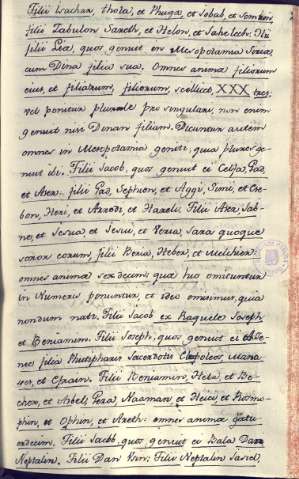 Filii Isachar, Thola, et Phuga, et Jobab, et Semron,
filii Zabulon Sareth, et Helon, et Jahelech. Hi
filii Lia, quos genuit in Mesopotamia Siriæ
cum Dina filia sua. Omnes animæ filiorum
eius, et filiarum, filiorum, scilicet, XXX tres,
vel ponitur plurale pro singulari, non enim
genuit nisi Dinam filiam. Dicuntur autem
omnes in Mesopotamia geniti, quia plures ge-
nuit ibi. Filii Jacob, quos genuit ei Celfa Gad,
et Aser. filii Gad, Sephion, et Aggi, Suni, et Ese-
bon, Heri, et Arrodi, et Harelii. Filii Aser, Jab-
ne, et Jesua et Jesui, et Beria, Sara quoque
soror eorum, filii Beria, Heber, et Melchiel.
omnes animæ sexdecim, quæ hic omittuntur
in Numeris ponuntur, et ideo omittimus, quia
nondum nati. Filii Jacob ex Raquele Joseph
et Beniamim. Filii Joseph, quos genuit ei Ase-
nec filia Phutipharis Sacerdotis Manas-
ses, et Efraim. Filii Beniamim, Bela et Be-
chor, et Asbel, Gera Naaman et Heici, et Rosmo-
phin, et Ophin, et Areth. omnes animæ qatu-
ordecim. Filii Jacob quos genuit ei Bala Dan
Neptalin, Filii Dan Usin. Filii Neptalin Jasiel,